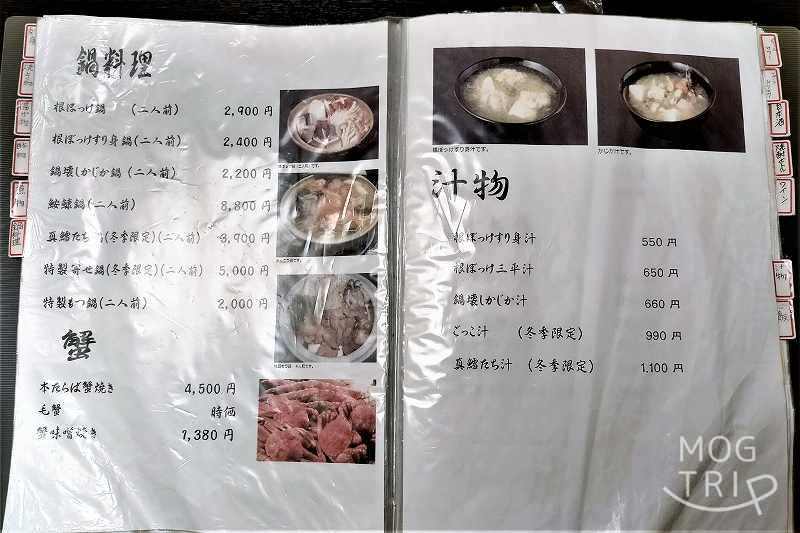 鍋料理
根ぼっけ鍋 (二人前) 2,900 円
根ぼっけすり身鍋(二人前) 2,400 円
鍋壊しかじか鍋(二人前) 2,200 円
鮟鱇鍋(二人前) 8,800 円
真鱈たち (冬季限定)(二人前) 3,900 円
特製寄せ鍋(冬季限定)(二人前) 5,000 円
特製もつ鍋(二人前) 2,000 円
蟹
本たらば蟹焼き 4,500 円
毛蟹 時価
蟹味噌焼き 1,380 円
根ぼっけすり身汁です。
かじか汁です。
汁物
根ぼっけすり身汁 550 円
根ぼっけ三平汁 650 円
鍋壊しかじか汁 660 円
ごっこ汁 (冬季限定) 990 円
真鱈たち汁 (冬季限定) 1.100 円
日本酒
ワイン
汁物
鍋料理
MOG
TRIP